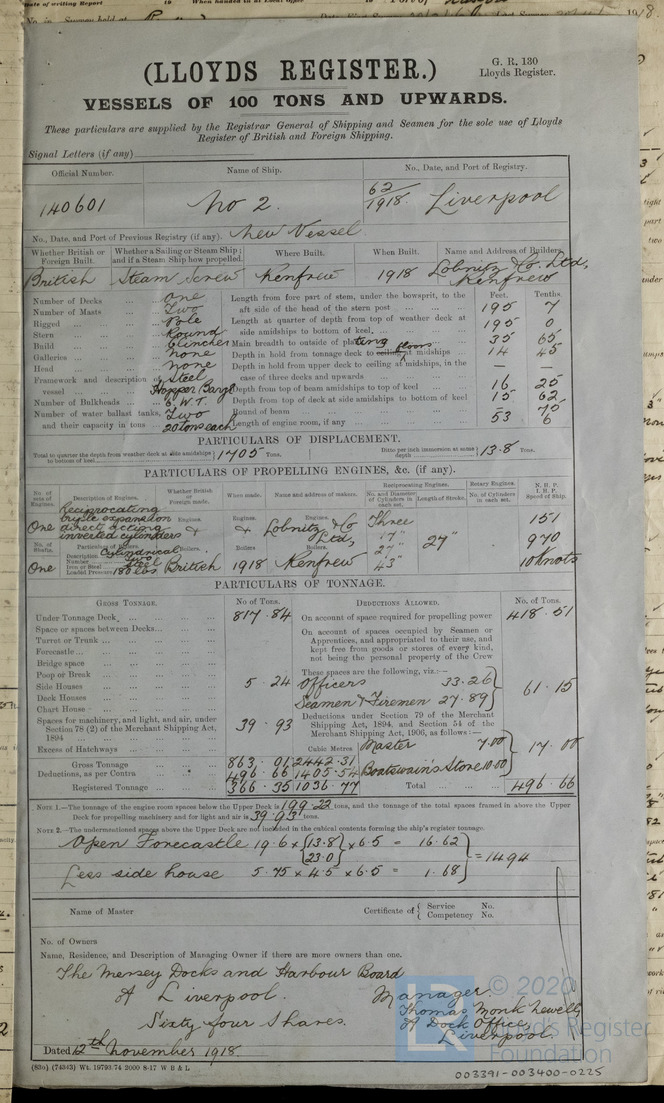 (LLOYDS REGISTER.)
G. R. 130
Lloyds Register.
VESSELS OF 100 TONS AND UPWARDS.
These particulars are supplied by the Registrar General of Shipping and Seamen for the sole use of Lloyds
Register of British and Foreign Shipping.
Signal Letters (if any)
Official Number. Name of Ship. No., Date, and Port of Registry.
140601 No 2. 62/1918. Liverpool
No., Date, and Port of Previous Registry (if any). New Vessel
Whether British or Foreign Built. Whether a Sailing or Steam Ship; and if a Steam Ship how propelled. Where Built. When Built. Name and Address of Builders.
British Steam Screw Renfrew 1918 Lobnitz & Co. Ltd, Renfrew
Feet. Tenths.
Number of Decks ... One
Number of Masts ... Two
Rigged ... Pole
Stern ... Round
Build ... Clincher
Galleries ... None
Head ... None
Framework and description of vessel ... Steel Hopper Barge
Number of Bulkheads ... 6 W.T.
Number of water ballast tanks, and their capacity in tons ... Two 20 tons each
Length from fore part of stem, under the bowsprit, to the aft side of the head of the stern post ... 195 7
Length at quarter of depth from top of weather deck at side amidships to bottom of keel ... 195 0
Main breadth to outside of plating 35 65
Depth in hold from tonnage deck to ceiling floors at midships ... 14 45
Depth in hold from upper deck to ceiling at midships, in the case of three decks and upwards — —
Depth from top of beam amidships to top of keel ... 16 25
Depth from top of deck at side amidships to bottom of keel 15 62
Round of beam ... 70
Length of engine room, if any ... 53 6
PARTICULARS OF DISPLACEMENT.
Total to quarter the depth from weather deck at side amidships to bottom of keel 1405 Tons. Ditto per inch immersion at same depth 13.8 Tons.
PARTICULARS OF PROPELLING ENGINES, &c. (if any).
No. of sets of Engines. Description of Engines. Whether British or Foreign made. When made. Name and address of makers. Reciprocating Engines. No. and Diameter of Cylinders in each set. Length of Stroke. Rotary Engines. No. of Cylinders in each set. N.H.P. I.H.P. Speed of Ship.
One Reciprocating triple expansion direct acting inverted cylinders Engines. & Engines. & Engines. Lobnitz & Co Ltd, Three 17" 27" 43" 27" 151 970 10 Knots
No. of Shafts. Particulars of Boilers. Boilers. Boilers Boilers.
One Description Cylindrical Number Two Iron or Steel Steel Loaded Pressure 180 lbs British 1918 Renfrew
PARTICULARS OF TONNAGE.
GROSS TONNAGE. No of Tons. DEDUCTIONS ALLOWED. No. of Tons.
Under Tonnage Deck ... 817.84
Space or spaces between Decks ...
Turret or Trunk ...
Forecastle ...
Bridge space
Poop or Break
Side Houses 5.24
Deck Houses
Chart House
Spaces for machinery, and light, and air, under Section 78 (2) of the Merchant Shipping Act, 1894 ... 39.93
Excess of Hatchways ...
On account of space required for propelling power 418.51
On account of spaces occupied by Seamen or Apprentices, and appropriated to their use, and kept free from goods or stores of every kind, not being the personal property of the Crew
These spaces are the following, viz.:—
Officers 33.26
Seamen & Firemen 27.89 61.15
Deductions under Section 79 of the Merchant Shipping Act, 1894, and Section 54 of the Merchant Shipping Act, 1906, as follows:—
Cubic Metres
Master 7.00
Boatswain's Store 10.00 17.00
Gross Tonnage 863.01 2442.31
Deductions, as per Contra ... 496.66 1405.54
Registered Tonnage 366.35 1036.77 Total ... 496.66
NOTE 1.—The tonnage of the engine room spaces below the Upper Deck is 199.22 tons, and the tonnage of the total spaces framed in above the Upper
Deck for propelling machinery and for light and air is 39.93 tons.
NOTE 2.—The undermentioned spaces above the Upper Deck are not included in the cubical contents forming the ship's register tonnage.
Open Forecastle 19.6 x {13.8 23.0} x 6.5 = 16.62
Less side house 5.75 x 4.5 x 6.5 = 1.68 = 14.94
Name of Master Certificate of { Service No. Competency No.
No. of Owners
Name, Residence, and Description of Managing Owner if there are more owners than one.
The Mersey Docks and Harbour Board
of Liverpool. Manager.
Thomas Monk Newell
Sixty four Shares. of Dock Office,
Liverpool.
Dated 12th November 1918
(83o) (74343) Wt. 19793/74 2000 8-17 W B & L
© 2020
Lloyds Register
Foundation
003391-003400-0225